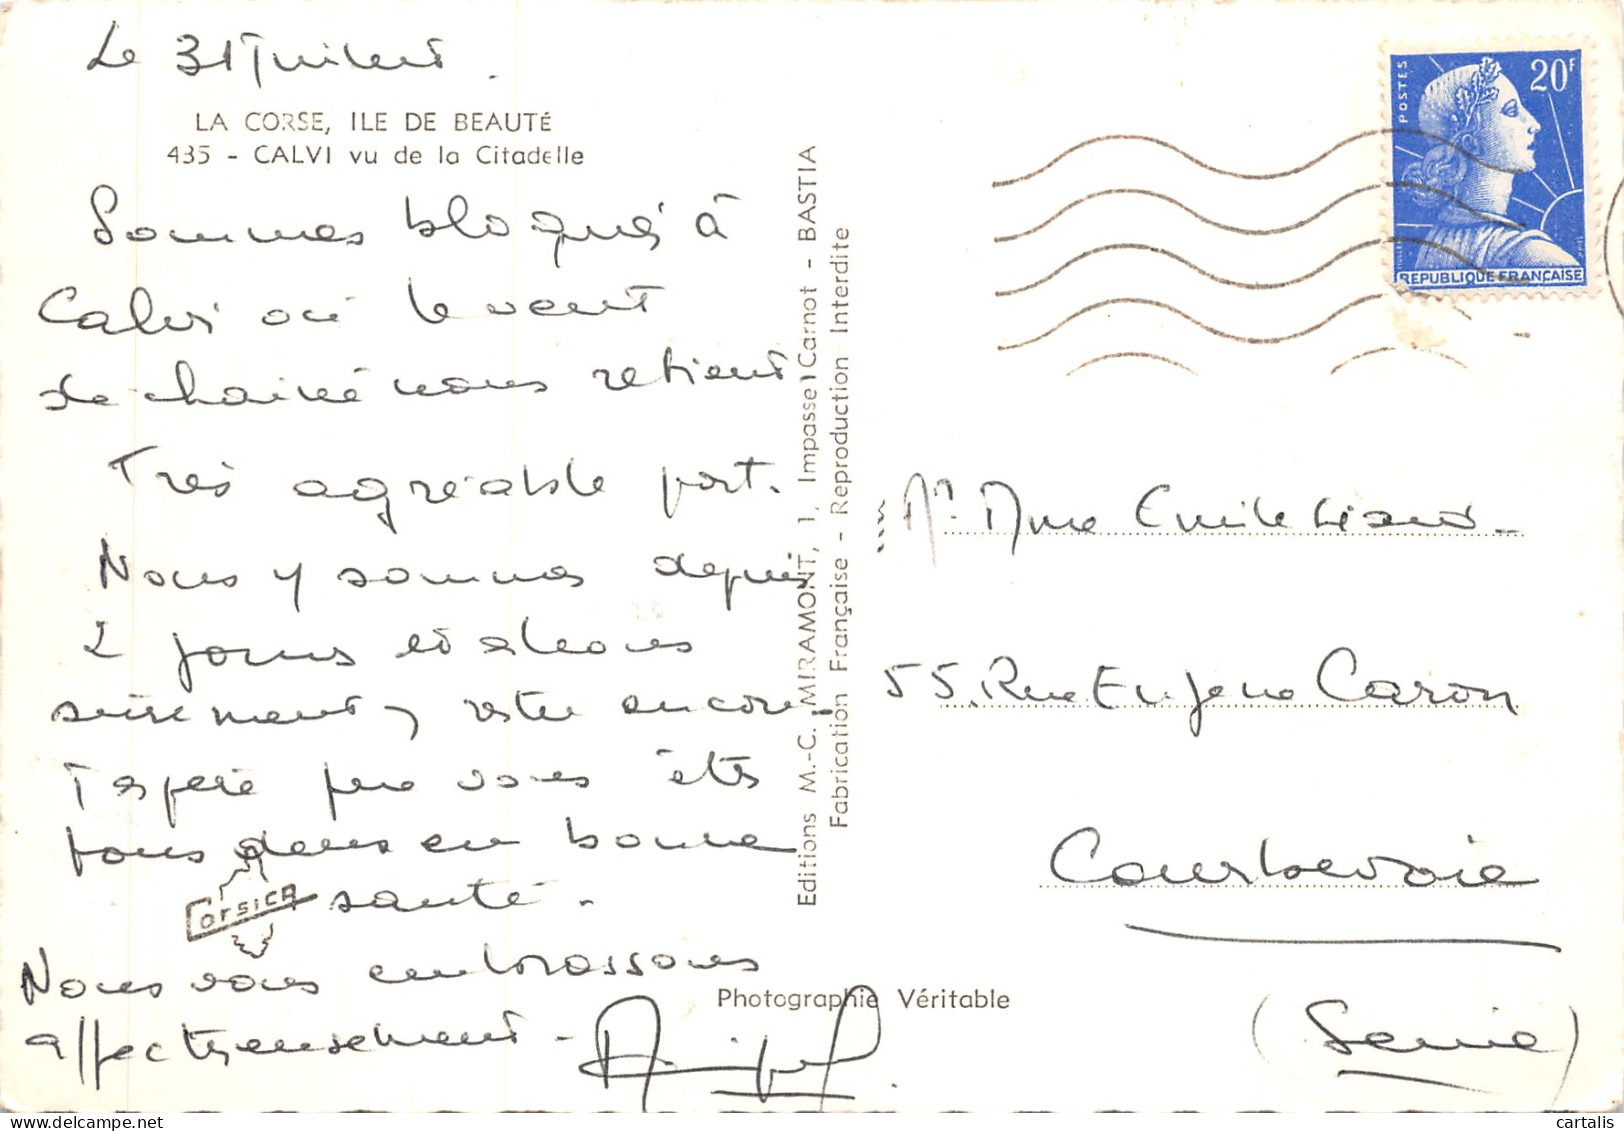 Le 31 Juillet.
LA CORSE, ILE DE BEAUTÉ
435 - CALVI vu de la Citadelle
Sommes bloqués à
Calvi où le vent
déchainé nous retient
Très agréable port.
Nous y sommes depuis
2 jours et allons
surement y rester encore.
J'espère que vous êtes
tous deux en bonne
santé.
Corsica
Nous vous embrassons
affectueusement.
Editions M.-C. MIRAMONT, 1, Impasse Carnot - BASTIA
Fabrication Française - Reproduction Interdite
Photographie Véritable
POSTES
20F
REPUBLIQUE FRANÇAISE
Mr Mme Emile
55. Rue Eugene Caron
Courbevoie
(Seine)
cartalis